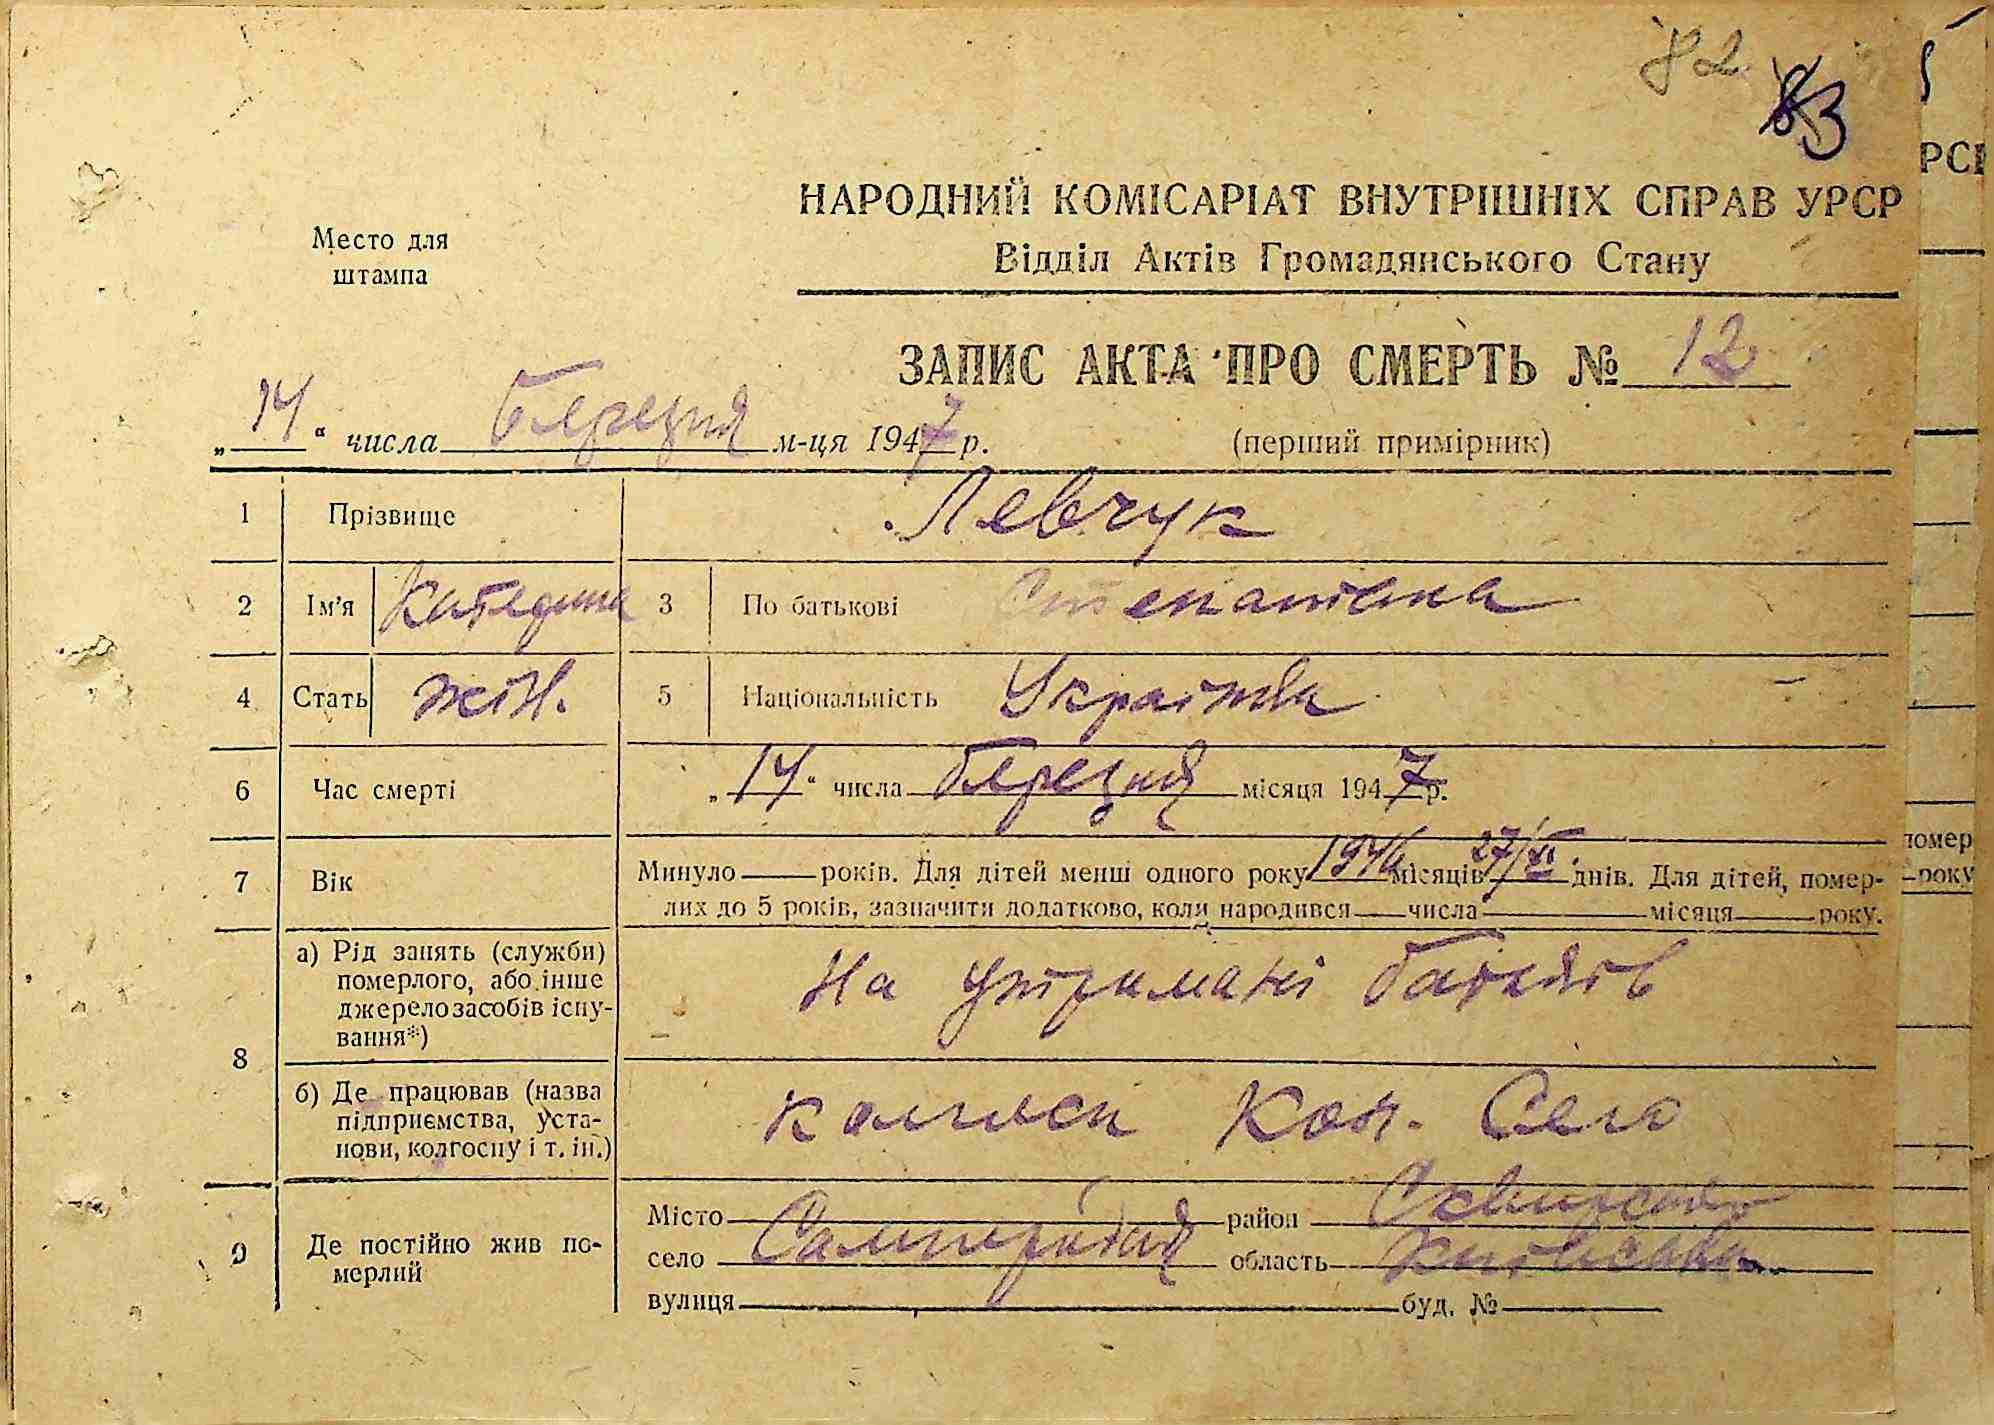 82 83
НАРОДНИЙ КОМІСАРІАТ ВНУТРІШНІХ СПРАВ УРСР
Место для
штампа
Відділ Актів Громадянського Стану
ЗАПИС АКТА ПРО СМЕРТЬ № 12
„14“ числа березня м-ця 1947 р. (перший примірник)
1 Прізвище Левчук
2 Ім'я Катерина 3 По батькові Степанівна
4 Стать жін. 5 Національність Українка
6 Час смерті „14“ числа березня місяця 1947 р.
7 Вік Минуло років. Для дітей менші одного року 1946 місяців 27/XI днів. Для дітей, помер-
лих до 5 років, зазначити додатково, коли народився числа місяця року.
8 а) Рід занять (служби)
померлого, або інше
джерело засобів існу-
вання*) На утримані батьків
б) Де працював (назва
підприємства, уста-
нови, колгоспу і т. ін.) колгосп Кол. Село
9 Де постійно жив по-
мерлий
Місто район Сквирсько
село Самгородка область Київсько
вулиця буд. №
РСР
помер
року